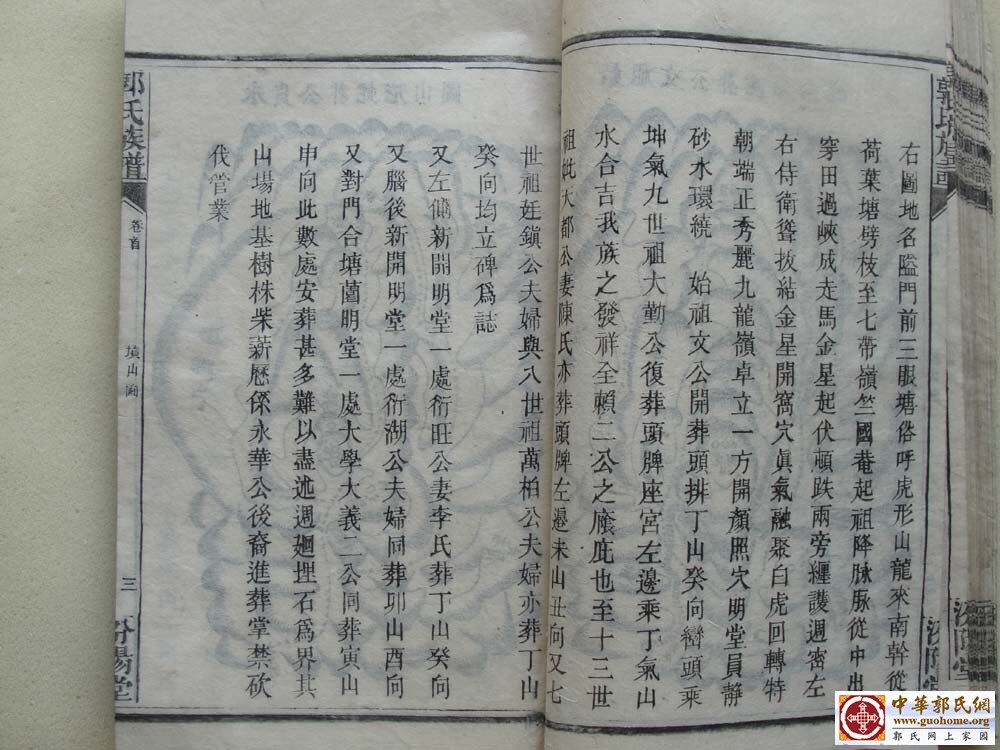 右圖地名隘門前三眼塘俗呼虎形山龍來南幹從
荷葉塘劈枝至七帶嶺竺國菴起祖降脉脉從中出
穿田過峽成走馬金星起伏頓跌兩旁纏護週密左
右侍衛聳拔結金星開窩穴眞氣融聚白虎回轉特
朝端正秀麗九龍嶺卓立一方開顏照穴明堂員静
砂水環繞 始祖文公開葬頭排丁山癸向巒頭乘
坤氣九世祖大勤公復葬頭牌座宮左邊乘丁氣山
水合吉我族之發祥全賴二公之廕庇也至十三世
祖妣大都公妻陳氏亦葬頭牌左邊未山丑向又七
世祖妊鎮公夫婦與八世祖萬柏公夫婦亦葬丁山
癸向均立碑爲誌
又左傭新開明堂一處衍旺公妻李氏葬丁山癸向
又腦後新開明堂一處衍湖公夫婦同葬卯山酉向
又對門合塘薗明堂一處大學大義二公同葬寅山
申向此數處安葬甚多難以盡述週廻埋石爲界其
山塲地基樹株柴薪歷係永華公後裔進葬掌禁砍
伐管業
郭氏族譜
卷首
墳山圖
三
汾陽堂
中華郭氏網
www.guohome.org
郭氏网上家园